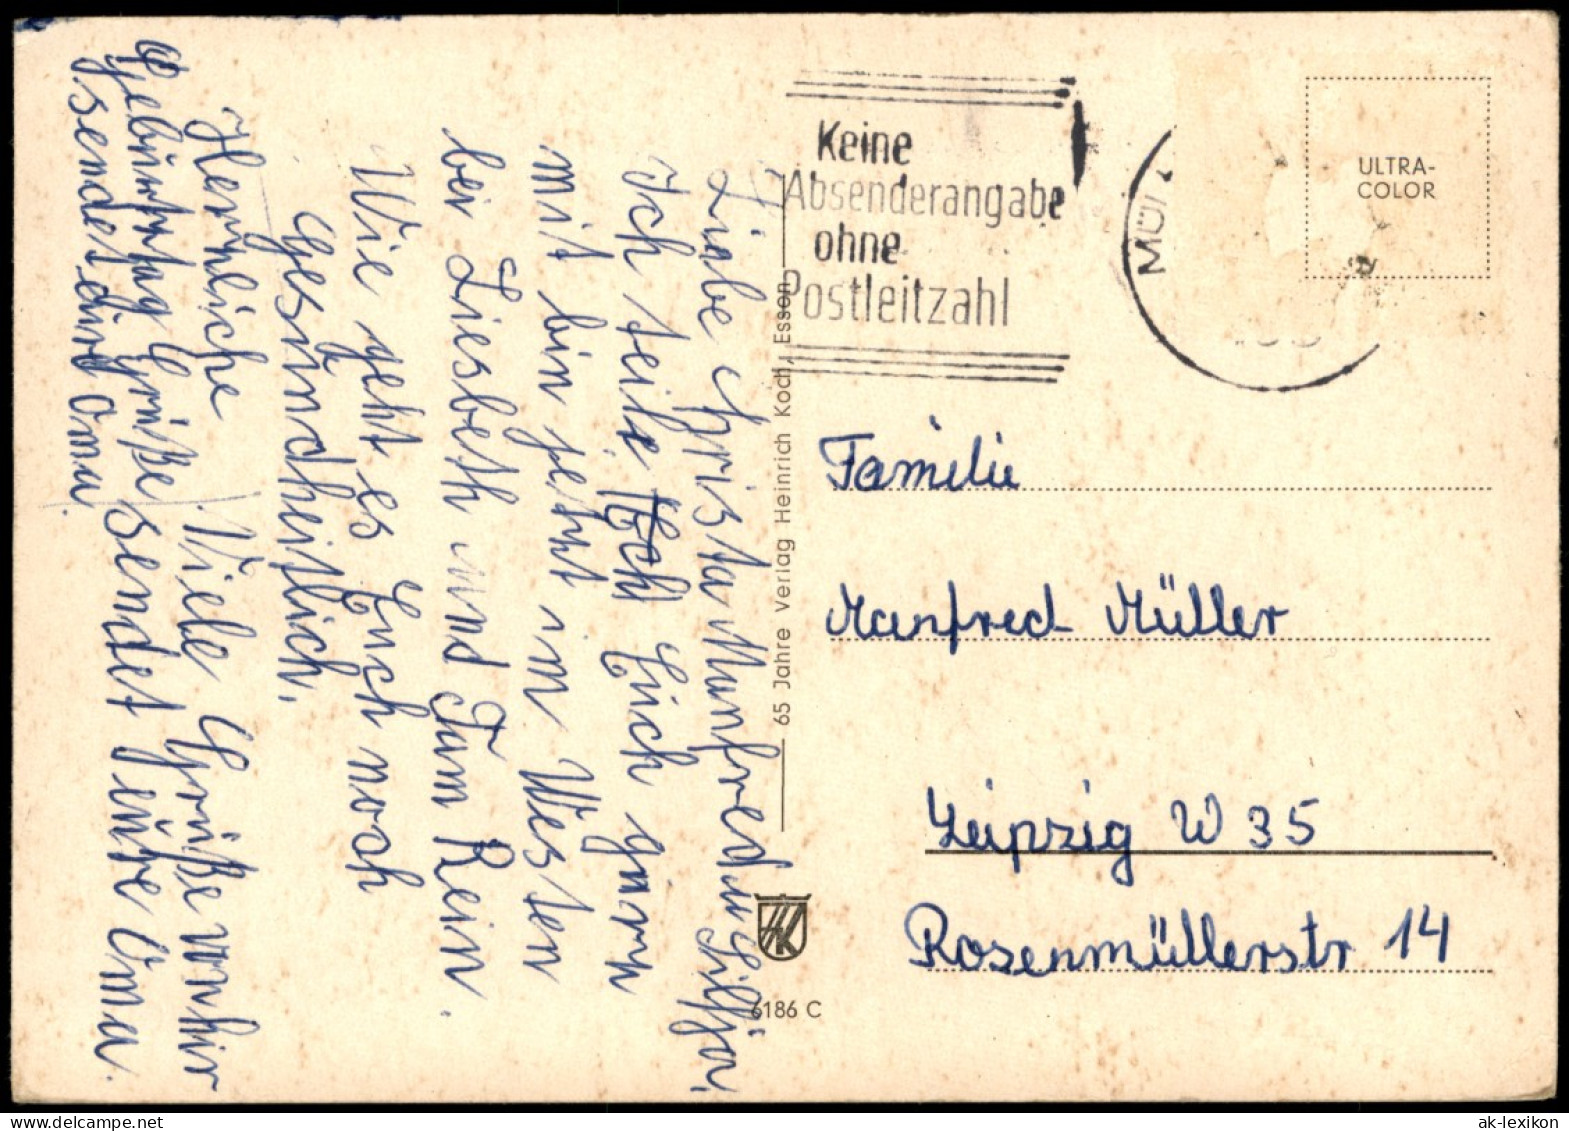 Liebe Christa Manfred u Silfja.
Ich teile Euch gärn
mit bin jetzt im Westen
bei Liesbeth und Fam Rein.
Wie geht es Euch noch
Gesundheitlich.
Hernliche Viele Grüße von hir
Geburtstag Grüße sendet eure Oma.
sendet dir Oma.
Keine
Absenderangabe
ohne
Postleitzahl
ULTRA-
COLOR
65 Jahre Verlag Heinrich Koch, Essen
6186 C
Familie
Manfred Müller
Leipzig W 35
Rosenmüllerstr 14
ak-lexikon